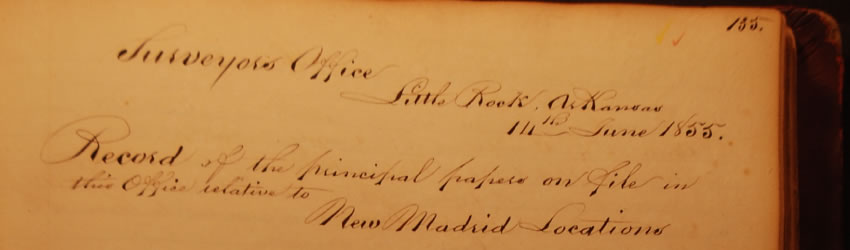 155.
Surveyors Office
Little Rock, Arkansas
14th June 1855.
Record of the principal papers on file in
this Office relative to
New Madrid Locations